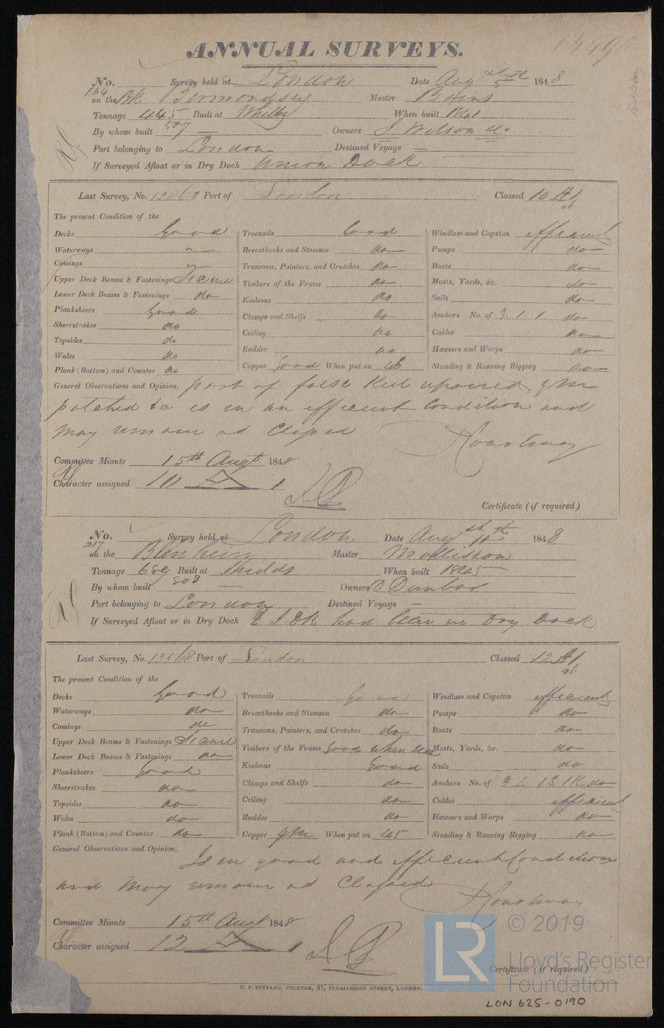 ANNUAL SURVEYS.
No. 164 Survey held at London Date Aug 1848
on the Bk Bermondsey Master
Tonnage 445 507 Built at Whitby When built
By whom built — Owners J Wilson & Co
Port belonging to London Destined Voyage —
If Surveyed Afloat or in Dry Dock Union Dock
Last Survey, No. Port of London Classed 10 A1
The present Condition of the
Decks Good Treenails Good Windlass and Capstan efficient
Waterways Breasthooks and Stemson do Pumps do
Comings Transoms, Pointers, and Crutches do Boats do
Upper Deck Beams & Fastenings Secure Timbers of the Frame do Masts, Yards, &c. do
Lower Deck Beams & Fastenings do Keelsons do Sails do
Planksheers Good Clamps and Shelfs do Anchors No. of 3 1 1 do
Sheerstrakes do Ceiling do Cables do
Topsides do Rudder do Hawsers and Warps do
Wales do Copper Good When put on 48 Standing & Running Rigging do
Plank (Bottom) and Counter do
General Observations and Opinion, part of false Keel repaired, YM
patched &c is in an efficient condition and
may remain as Classed
Committee Minute 15th Augt 1848
Character assigned 10 A 1
Certificate (if required)
No. 217 Survey held at London Date Aug 1848
on the Blenheim Master Mollison
Tonnage 808 Built at Shields When built
By whom built Owners D Dunbar
Port belonging to London Destined Voyage —
If Surveyed Afloat or in Dry Dock E I Dk had been in Dry Dock
Last Survey, No. Port of London Classed 12 A1
The present Condition of the
Decks Good Treenails Good Windlass and Capstan efficient
Waterways do Breasthooks and Stemson do Pumps do
Comings do Transoms, Pointers, and Crutches do Boats do
Upper Deck Beams & Fastenings Secure Timbers of the Frame Good when seen Masts, Yards, &c. do
Lower Deck Beams & Fastenings do Keelsons Good Sails do
Planksheers Good Clamps and Shelfs do Anchors No. of 3 2 1 S 1 K do
Sheerstrakes do Ceiling do Cables efficient
Topsides do Rudder do Hawsers and Warps do
Wales do Copper YM When put on 45 Standing & Running Rigging do
Plank (Bottom) and Counter do
General Observations and Opinion, Is in good and efficient Condition
and may remain as Classed
Committee Minute 15th Aug 1848
Character assigned 12 A 1
Certificate (if required)
© 2019
LR
Lloyd's Register
Foundation
LON 625-0190